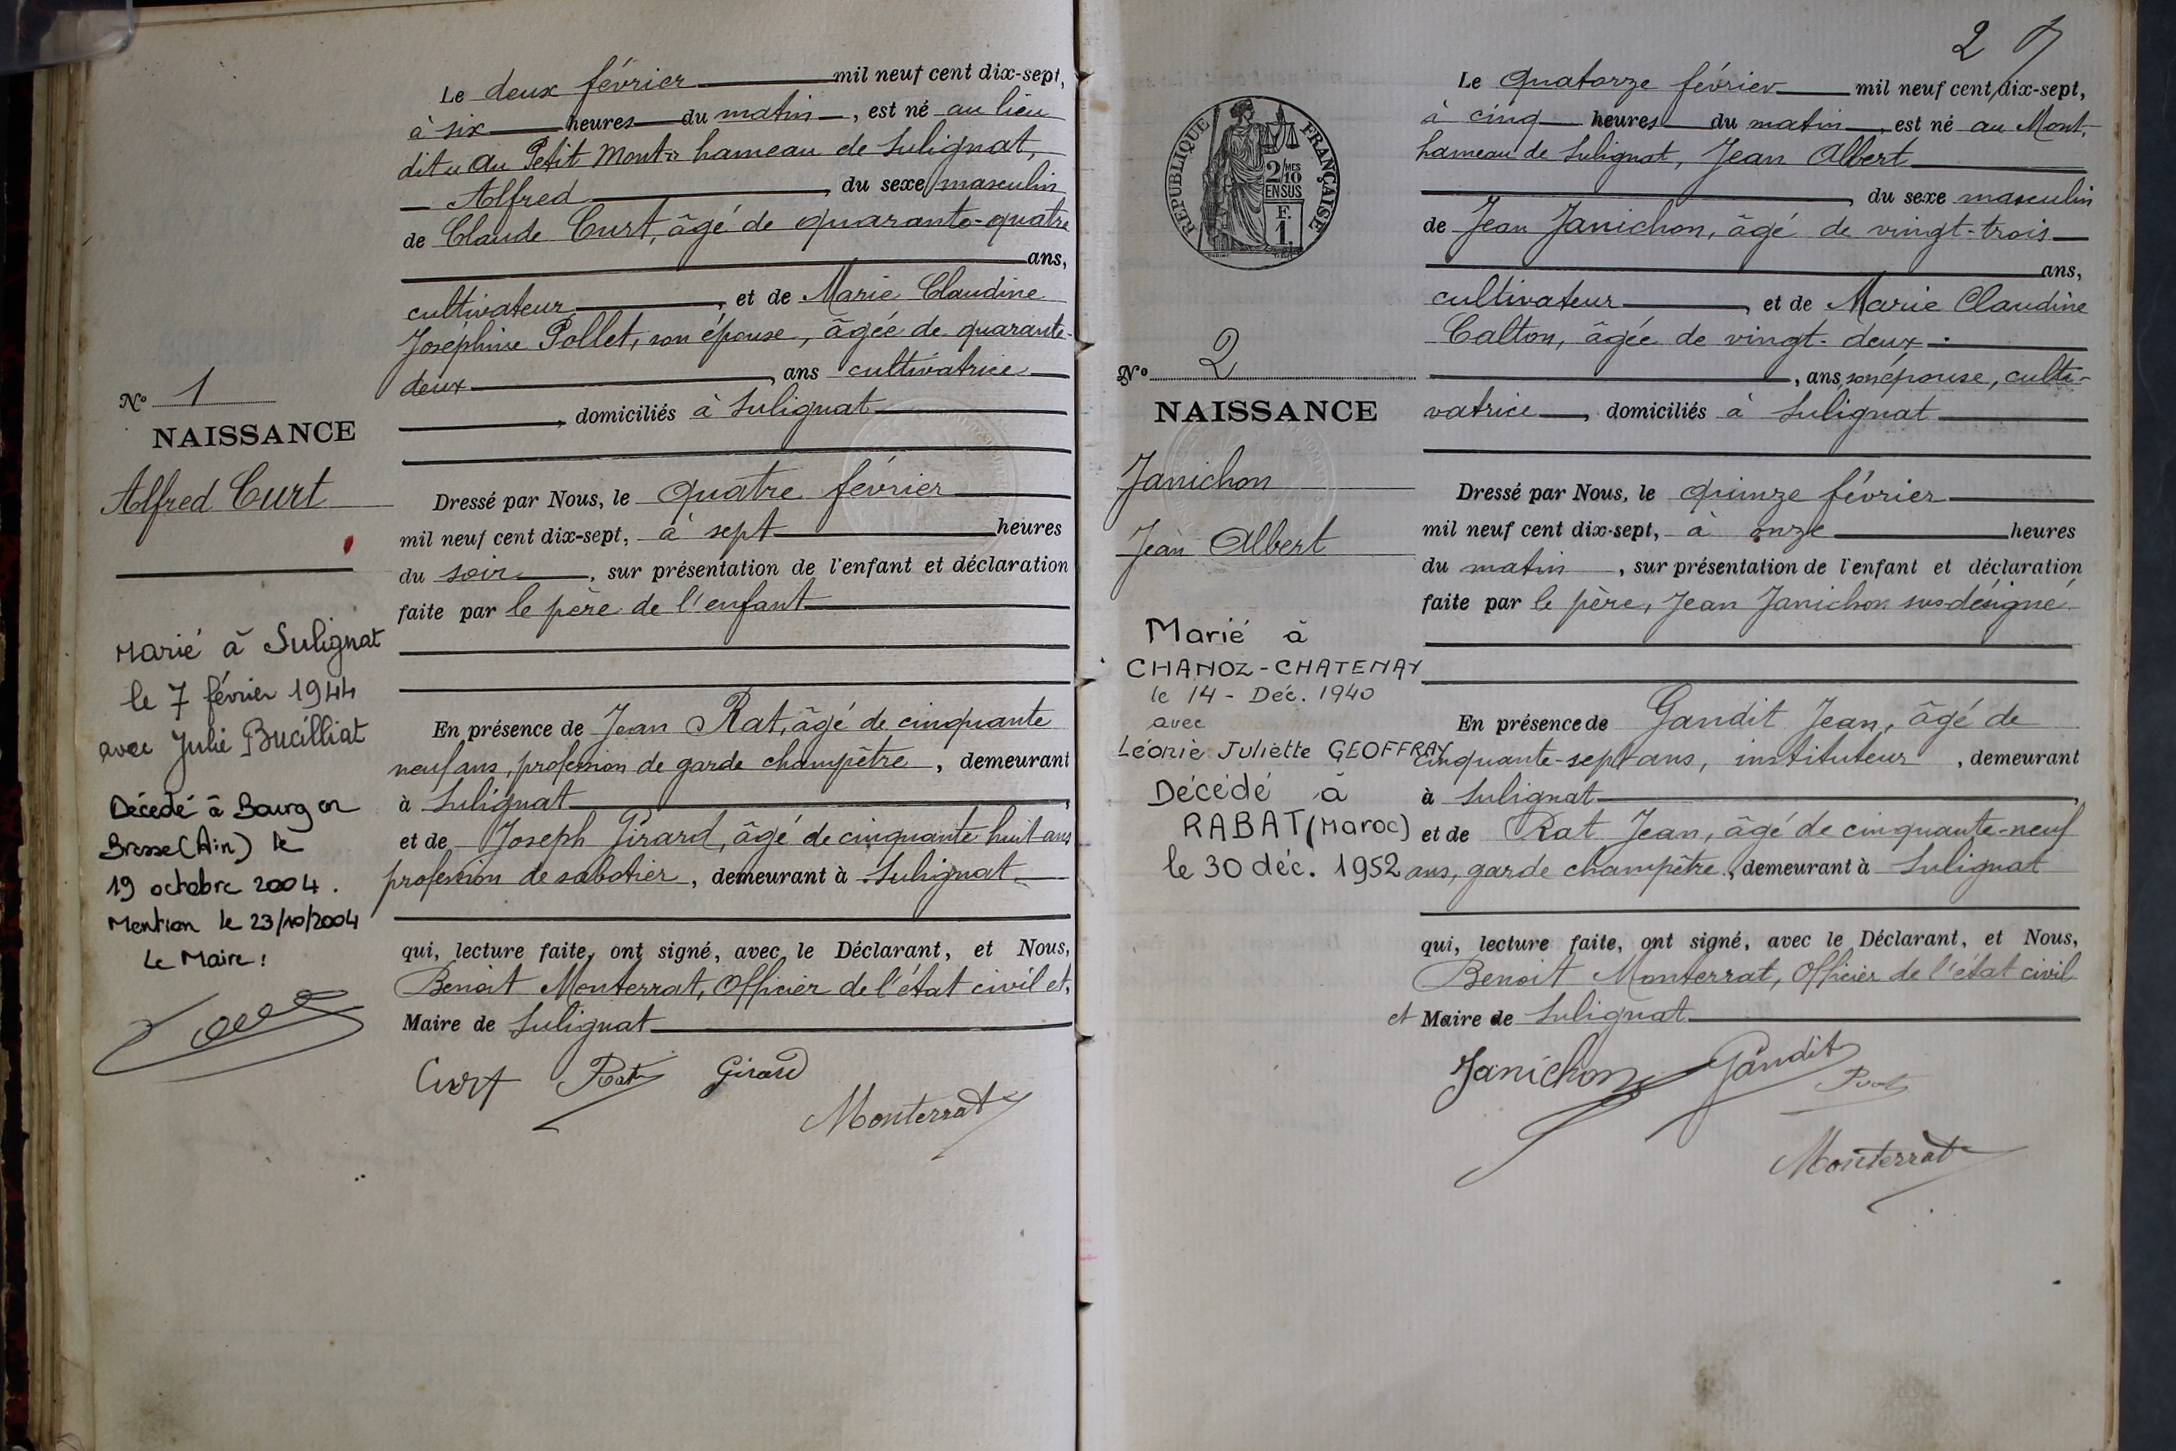 Le deux février mil neuf cent dix-sept,
à six heures du matin, est né au lieu
dit « au Petit Mont » hameau de Sulignat,
Alfred, du sexe masculin
de Claude Curt, âgé de quarante-quatre
ans,
cultivateur, et de Marie Claudine
Joséphine Pollet, son épouse, âgée de quarante-
deux, ans cultivatrice
, domiciliés à Sulignat
Dressé par Nous, le quatre février
mil neuf cent dix-sept, à sept heures
du soir, sur présentation de l'enfant et déclaration
faite par le père de l'enfant
En présence de Jean Rat, âgé de cinquante
neuf ans, profession de garde champêtre, demeurant
à Sulignat,
et de Joseph Girard, âgé de cinquante huit ans
profession de sabotier, demeurant à Sulignat
qui, lecture faite, ont signé, avec le Déclarant, et Nous,
Benoit Monterrat, Officier de l'état civil et,
Maire de Sulignat
Curt Rat Girard
Monterrat
N° 1
NAISSANCE
Alfred Curt
Marié à Sulignat
le 7 février 1944
avec Julie Bucilliat
Décédé à Bourg en
Bresse (Ain) le
19 octobre 2004.
Mention le 23/10/2004
Le Maire :
2
Le quatorze février mil neuf cent dix-sept,
à cinq heures du matin, est né au Mont,
hameau de Sulignat, Jean Albert
, du sexe masculin
de Jean Janichon, âgé de vingt-trois
ans,
cultivateur, et de Marie Claudine
Calton, âgée de vingt-deux
, ans, son épouse, culti-
vatrice, domiciliés à Sulignat
Dressé par Nous, le quinze février
mil neuf cent dix-sept, à onze heures
du matin, sur présentation de l'enfant et déclaration
faite par le père, Jean Janichon susdésigné
En présence de Gandit Jean, âgé de
cinquante-sept ans, instituteur, demeurant
à Sulignat,
et de Rat Jean, âgé de cinquante-neuf
ans, garde champêtre, demeurant à Sulignat
qui, lecture faite, ont signé, avec le Déclarant, et Nous,
Benoit Monterrat, Officier de l'état civil
et Maire de Sulignat
Janichon Gandit
Rat
Monterrat
RÉPUBLIQUE FRANÇAISE
2/10 MES
EN SUS
F.
1.
N° 2
NAISSANCE
Janichon
Jean Albert
Marié à
CHANOZ-CHATENAY
le 14 - Déc. 1940
avec
Léonie Juliette GEOFFRAY
Décédé à
RABAT (Maroc)
le 30 déc. 1952